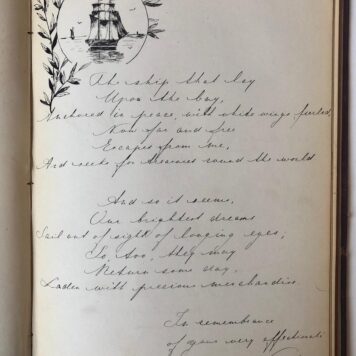 The ship that lay
Upon the bay,
Anchored in peace, with white wings furled,
Now far and free
Escapes from me,
And seeks for treasures round the world
And so it seems,
Our brightest dreams
Sail out of sight of longing eyes;
So, too, they may
Return some day,
Laden with precious merchandise.
In remembrance
of your very affectionate